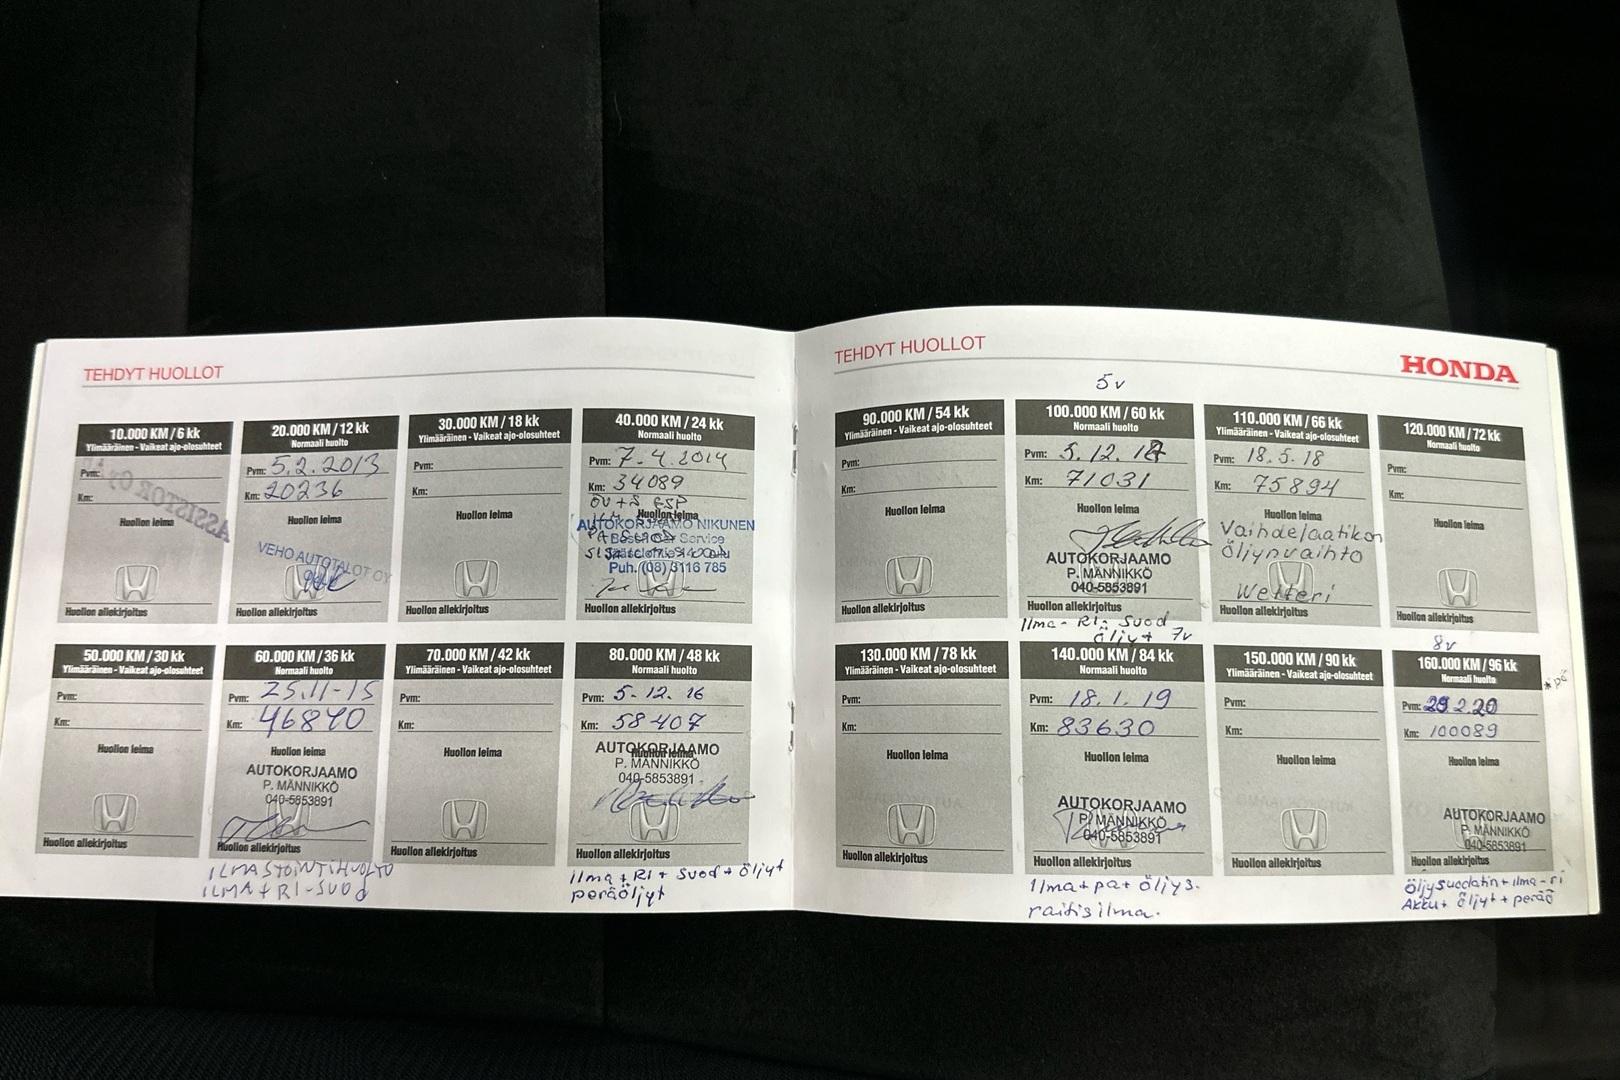 TEHDYT HUOLLOT
10.000 KM / 6 kk
Ylimääräinen - Vaikeat ajo-olosuhteet
Pvm:
Km:
Huollon leima
Huollon allekirjoitus
20.000 KM / 12 kk
Normaali huolto
Pvm: 5.2.2013
Km: 20236
Huollon leima
VEHO AUTOTALOT OY
Huollon allekirjoitus
30.000 KM / 18 kk
Ylimääräinen - Vaikeat ajo-olosuhteet
Pvm:
Km:
Huollon leima
Huollon allekirjoitus
40.000 KM / 24 kk
Normaali huolto
Pvm: 7.4.2014
Km: 34089
Huollon leima
AUTOKORJAAMO NIKUNEN
Bosch Car Service
Puh. (08) 3116 785
Huollon allekirjoitus
50.000 KM / 30 kk
Ylimääräinen - Vaikeat ajo-olosuhteet
Pvm:
Km:
Huollon leima
Huollon allekirjoitus
60.000 KM / 36 kk
Normaali huolto
Pvm: 25.11-15
Km: 46840
Huollon leima
AUTOKORJAAMO
P. MÄNNIKKÖ
040-5853891
Huollon allekirjoitus
ILMASTOINTIHUOLTO
ILMA + RI-SUOD
70.000 KM / 42 kk
Ylimääräinen - Vaikeat ajo-olosuhteet
Pvm:
Km:
Huollon leima
Huollon allekirjoitus
80.000 KM / 48 kk
Normaali huolto
Pvm: 5-12. 16
Km: 58407
Huollon leima
AUTOKORJAAMO
P. MÄNNIKKÖ
040-5853891
Huollon allekirjoitus
Ilma + RI + Suod + öljyt
peräöljyt
TEHDYT HUOLLOT
HONDA
90.000 KM / 54 kk
Ylimääräinen - Vaikeat ajo-olosuhteet
Pvm:
Km:
Huollon leima
Huollon allekirjoitus
5v
100.000 KM / 60 kk
Normaali huolto
Pvm: 5.12.17
Km: 71031
Huollon leima
AUTOKORJAAMO
P. MÄNNIKKÖ
040-5853891
Huollon allekirjoitus
Ilma- RI- Suod
öljyt
110.000 KM / 66 kk
Ylimääräinen - Vaikeat ajo-olosuhteet
Pvm: 18.5.18
Km: 75894
Huollon leima
Vaihdelaatikon
öljynvaihto
Wetteri
Huollon allekirjoitus
120.000 KM / 72 kk
Normaali huolto
Pvm:
Km:
Huollon leima
Huollon allekirjoitus
130.000 KM / 78 kk
Ylimääräinen - Vaikeat ajo-olosuhteet
Pvm:
Km:
Huollon leima
Huollon allekirjoitus
7v
140.000 KM / 84 kk
Normaali huolto
Pvm: 18.1.19
Km: 83630
Huollon leima
AUTOKORJAAMO
P. MÄNNIKKÖ
040-5853891
Huollon allekirjoitus
Ilma + pa + öljys.
raitisilma.
150.000 KM / 90 kk
Ylimääräinen - Vaikeat ajo-olosuhteet
Pvm:
Km:
Huollon leima
Huollon allekirjoitus
8v
160.000 KM / 96 kk
Normaali huolto
Pvm: 29 2.20
Km: 100089
Huollon leima
AUTOKORJAAMO
P. MÄNNIKKÖ
040-5853891
Huollon allekirjoitus
öljysuodatin + ilma - ri
Akku + öljyt + perää